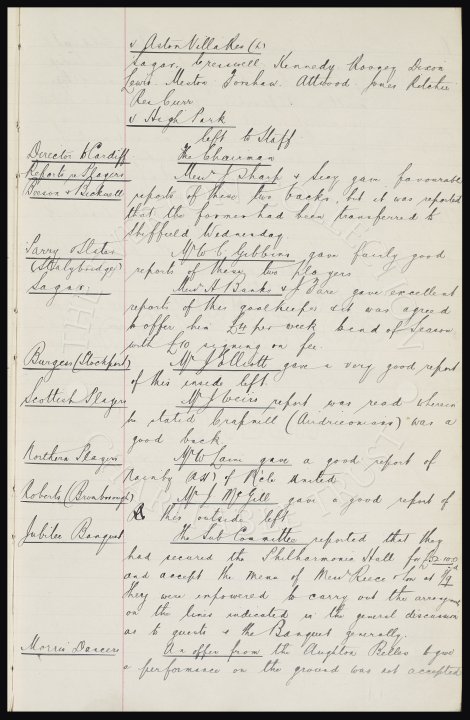 v Aston Villa Res (h)
Sagar. Cresswell. Kennedy. Rooney Dixon
Lewis. Merton Forshaw. Attwood. Jones Fletcher
Res Curr
v High Park
left to Staff
Director to Cardiff. The Chairman
Reports re Players Messrs J Sharp & Secy gave favourable
Benson & Bicknell reports of these two backs, but it was reported
that the former had been transferred to
Sheffield Wednesday
Parry & Slater Mr W C Gibbins gave fairly good
(Stalybridge) reports of these two players
Sagar. Messrs A Banks & J Fare gave excellent
reports of this goalkeeper & it was agreed
to offer him £4 per week to end of Season
with £10 signing on fee.
Burgess (Stockport) Mr J Elliott gave a very good report
of this inside left
Scottish Players Mr J Weirs report was read wherein
he stated Crapnell (Airdrieonians) was a
good back
Northern Players Mr W Cain gave a good report of
Nainby of Hole United
Roberts (Bromborough) Mr J McGill gave a good report of
this outside left
Jubilee Banquet The Sub Committee reported that they
had secured the Philharmonic Hall for £52.10.0
and accept the menu of Messrs Reece & Son at 9/9
They were empowered to carry out the arrangements
on the lines indicated in the general discussion
as to guests & the Banquet generally.
Morris Dancers An offer from the Aughton Belles to give
a performance on the ground was not accepted